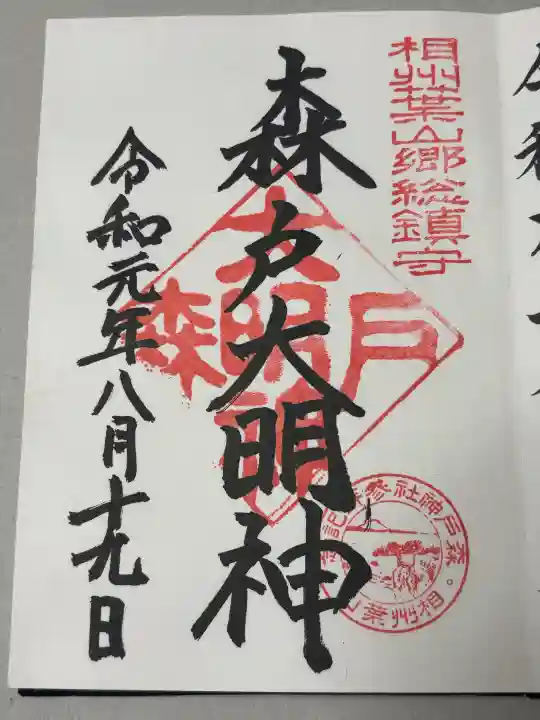 相州葉山郷総鎮守
森戸大明神
令和元年八月十九日
森戸
大明神
森戸神社参拝記念
相州葉山